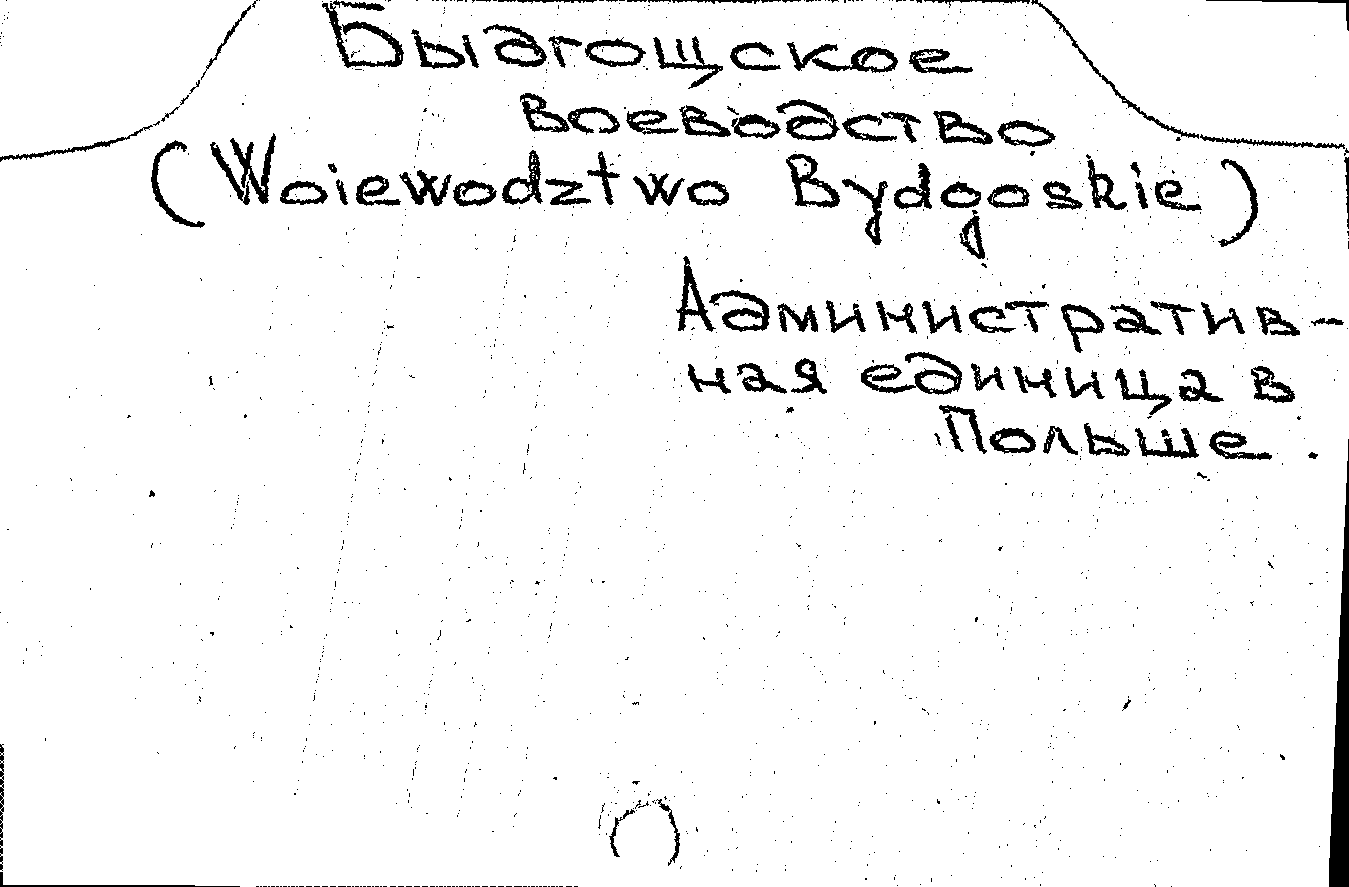 Быдгощское
воеводство
(Woiewodztwo Bydgoskie)
Административ-
ная единица в
Польше.